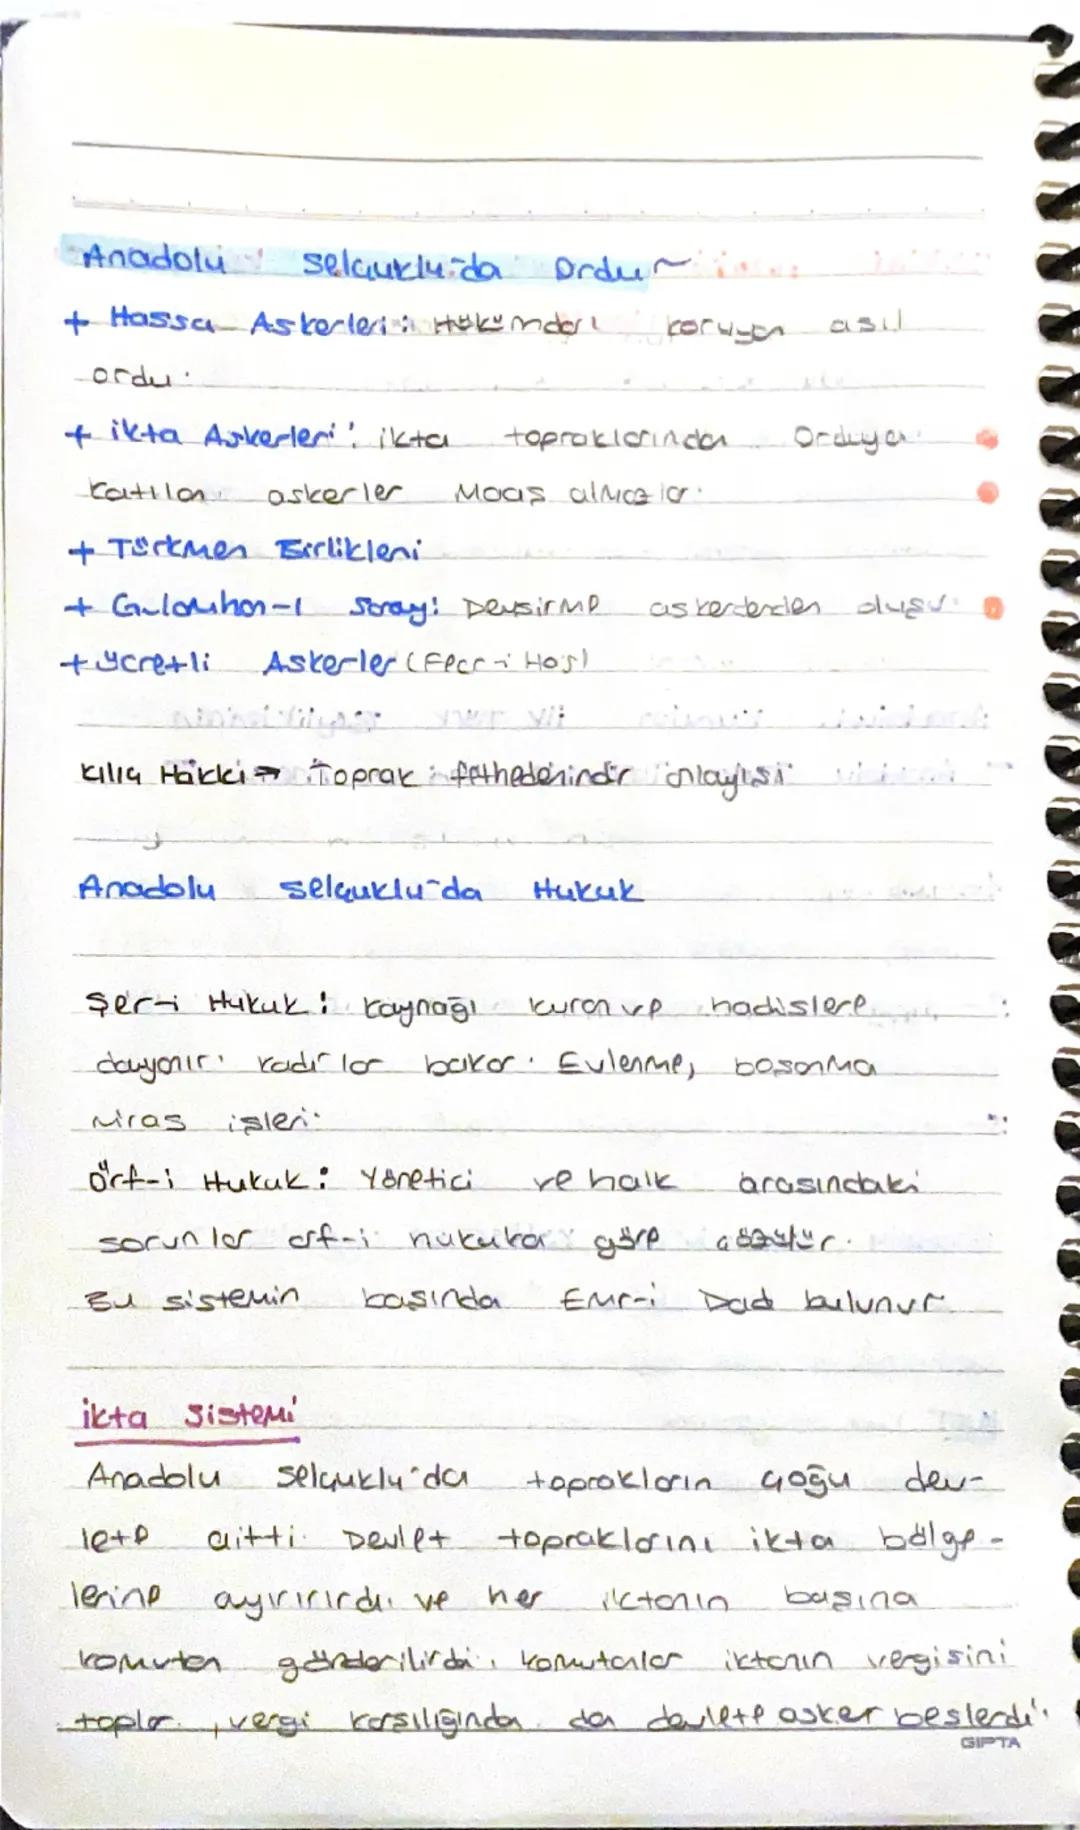 Anadolu Selçuklu'da Ordu ~
+ Hassa Askerleri : Hükümdarı koruyan asıl
ordu.
+ ikta Askerleri : ikta topraklarından Orduya
Katılan askerler Maaş almazlar.
+ Türkmen Birlikleri
+ Gulamhan-ı Saray: Devşirme askerlerden oluşur.
+ ücretli Askerler (Ecr-i Has)
Kılıç Hakkı → Toprak fethedenindir anlayışı
Anadolu Selçuklu'da Hukuk
Şer-i Hukuk : kaynağı kuran ve hadislere
dayanır. kadılar bakar. Evlenme, boşanma
miras işleri.
Örf-i Hukuk : Yönetici ve halk arasındaki
sorunlar örf-i hukuka göre çözülür.
Bu sistemin başında Emr-i Dad bulunur
ikta Sistemi
Anadolu Selçuklu'da toprakların çoğu dev-
lete aitti. Devlet topraklarını ikta bölge-
lerine ayırırırdı. ve her iktanın başına
komutan gönderilirdi. komutanlar iktanın vergisini
toplar, vergi karşılığında da devlete asker beslerdi.
GIPTA